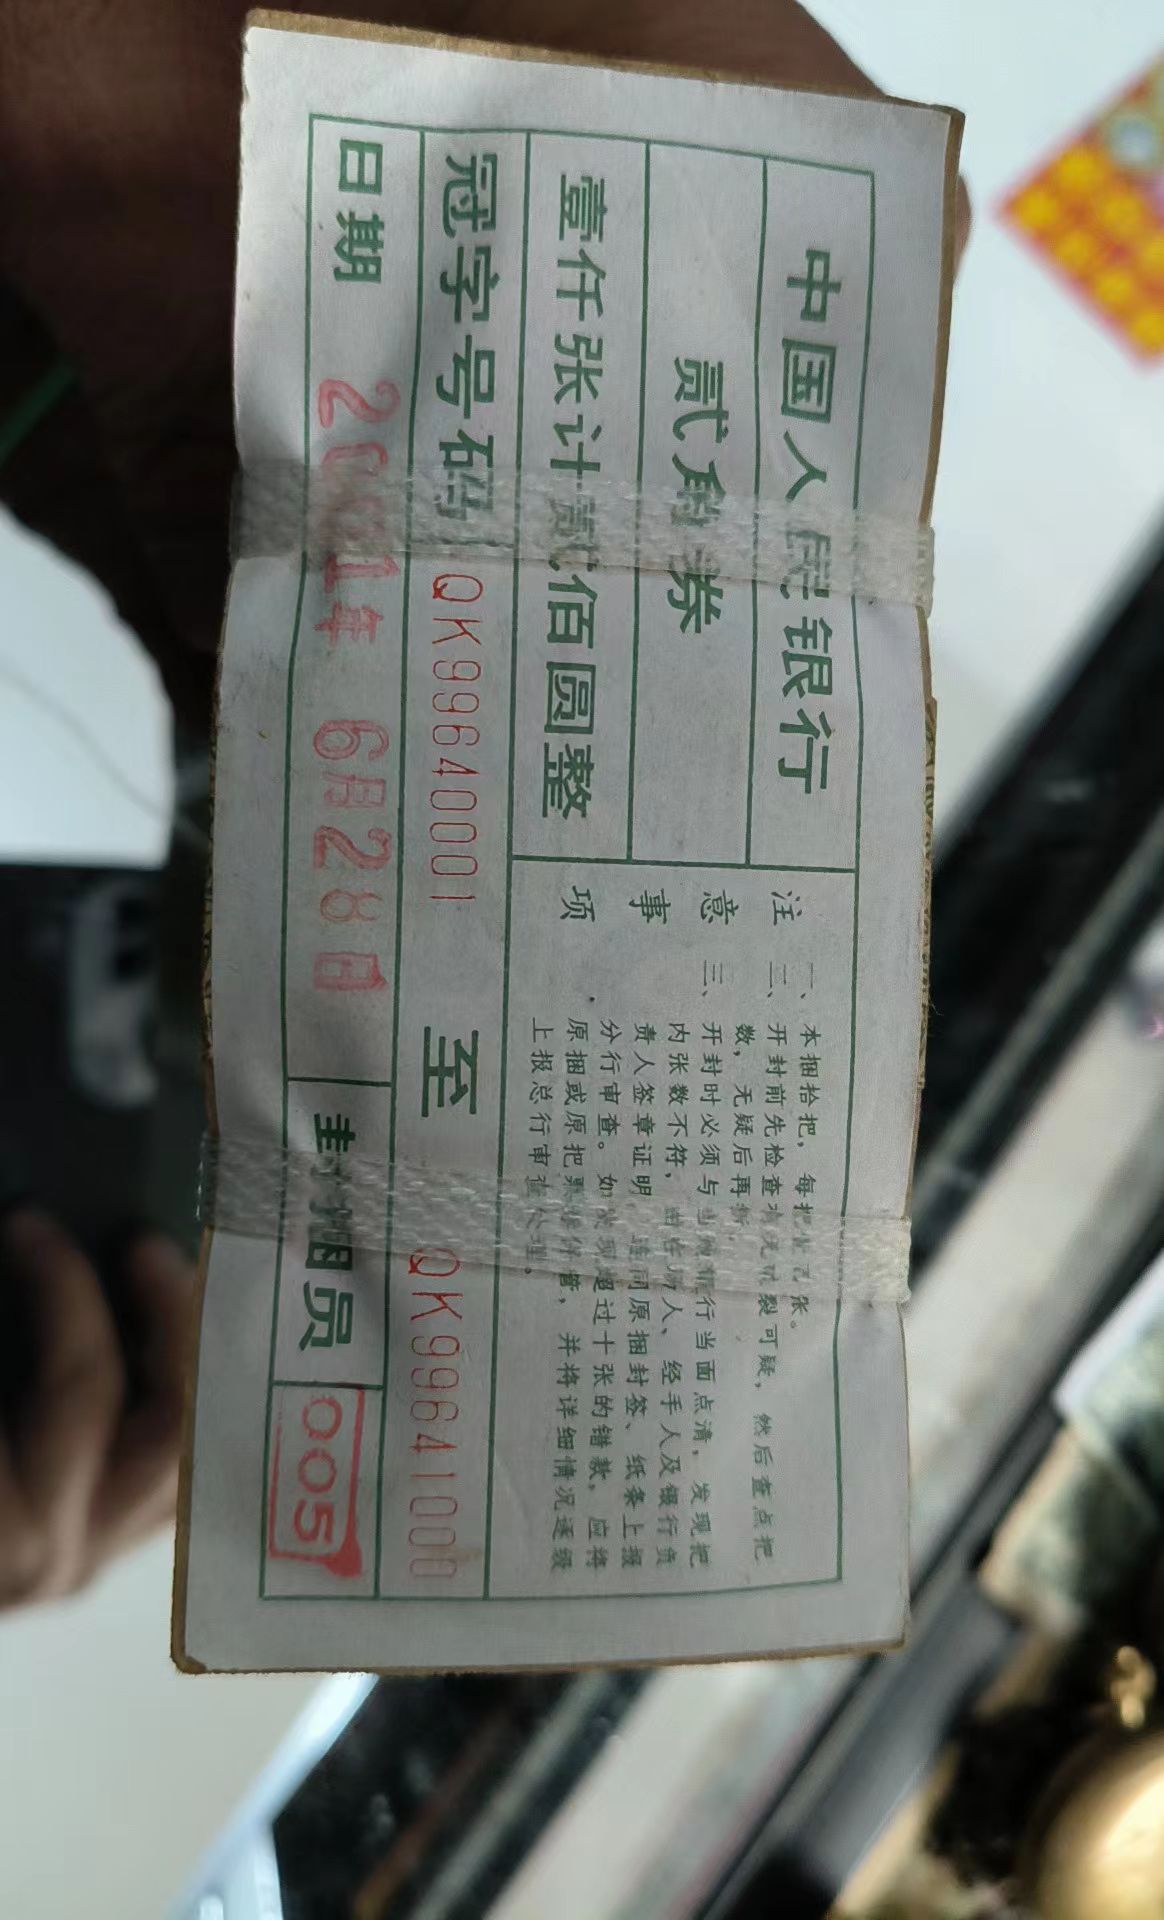 中国人民银行
贰角券
壹仟张计贰佰圆整
注意事项
一、本捆拾把，每把壹百张。
二、开封前先检查有无破裂可疑，然后查点把
数，无疑后再拆
三、开封时必须与当地银行当面点清，发现把
内张数不符，由在场人、经手人及银行负
责人签章证明，连同原捆封签、纸条上报
分行审查。如发现超过十张的错款，应将
原捆或原把票样保管，并将详细情况逐级
上报总行审查处理。
冠字号码 QK99640001 至 QK99641000
日期 2001年 6月28日 封捆员 005